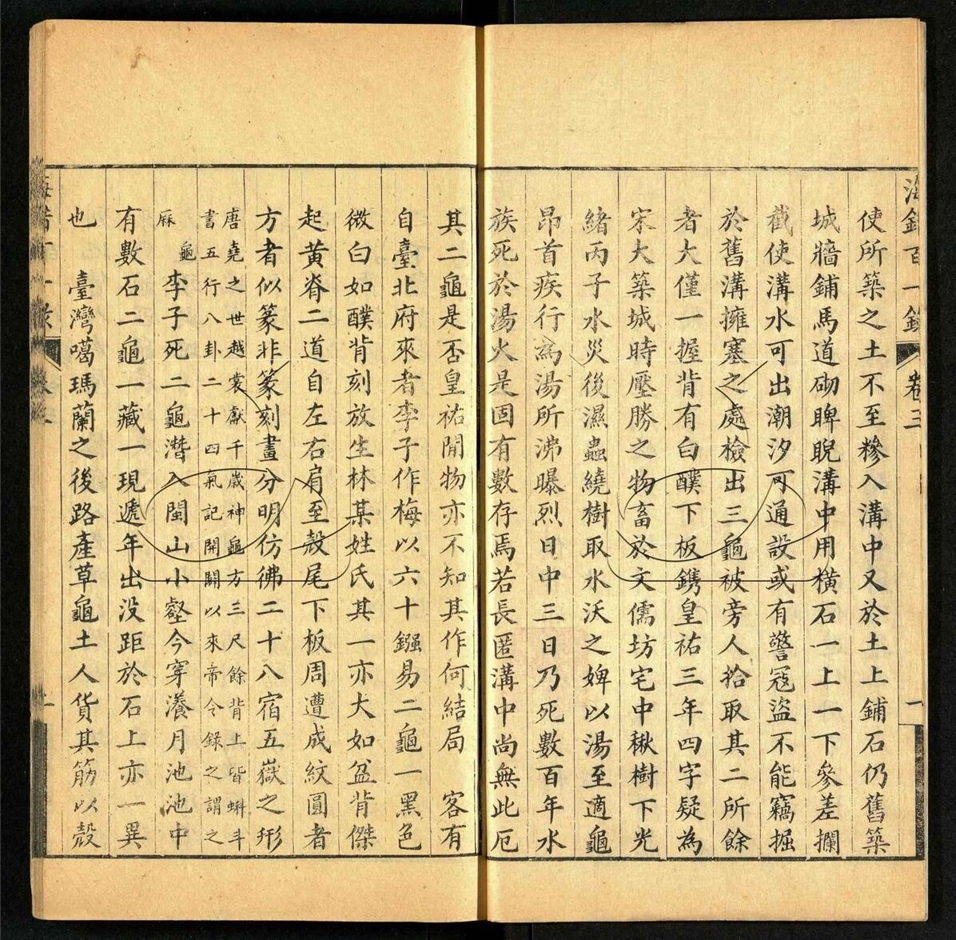 海錯百一錄
卷三
一
使所築之土不至糝入溝中又於土上鋪石仍舊築
城牆鋪馬道砌睥睨溝中用橫石一上一下參差攔
截使溝水可出潮汐可通設或有警寇盜不能竊掘
於舊溝擁塞之處檢出三龜被旁人拾取其二所餘
者大僅一握背有白醭下板鐫皇祐三年四字疑為
宋大築城時壓勝之物畜於文儒坊宅中楸樹下光
緒丙子水災後濕蟲繞樹取水沃之婢以湯至適龜
昂首疾行為湯所沸曝烈日中三日乃死數百年水
族死於湯火是固有數存焉若長匿溝中尚無此厄
其二龜是否皇祐間物亦不知其作何結局　客有
自臺北府來者李子作梅以六十鏹易二龜一黑色
微白如醭背刻放生林某姓氏其一亦大如盆背傑
起黃脊二道自左右肩至殼尾下板周遭成紋圓者
方者似篆非篆刻畫分明仿彿二十八宿五嶽之形
唐堯之世越裳獻千歲神龜方三尺餘背上皆蝌斗
書五行八卦二十四氣記開闢以來帝令錄之謂之
龜
厤
李子死二龜潛入閩山小壑今穿瀁月池池中
有數石二龜一藏一現遞年出沒距於石上亦一異
也　臺灣噶瑪蘭之後路產草龜土人貨其筋以殼